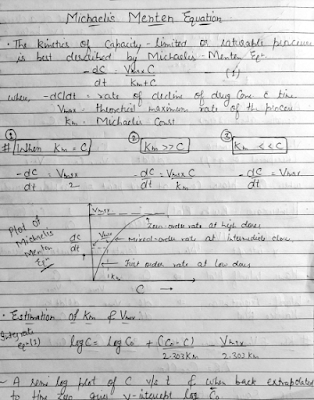 Michaelis Menten Equation
• The kinetics of capacity-limited or saturable processes
is best described by Michaelis-Menten Eqn
-dC/dt = Vmax C/Km+C (1)
where, -dC/dt = rate of decline of drug conc c time
Vmax = theoretical maximum rate of the process
Km = Michaelis Const
① ② ③
# When Km = C Km >> C Km << C
-dC/dt = Vmax/2 -dC/dt = Vmax C/Km -dC/dt = Vmax
Vmax
Zero order rate at high doses
Plot of
Michaelis
Menten
Eqn
dC/dt
Mixed order rate at intermediate dose
First order rate at low doses
Km
C →
• Estimation of Km & Vmax
Integrate
Eqn (1)
log C = log C0 + (C0-C)/2.303Km - Vmax/2.303Km
- A semi log plot of C v/s t & when back extrapolated
to time zero gives y-intercept log C0